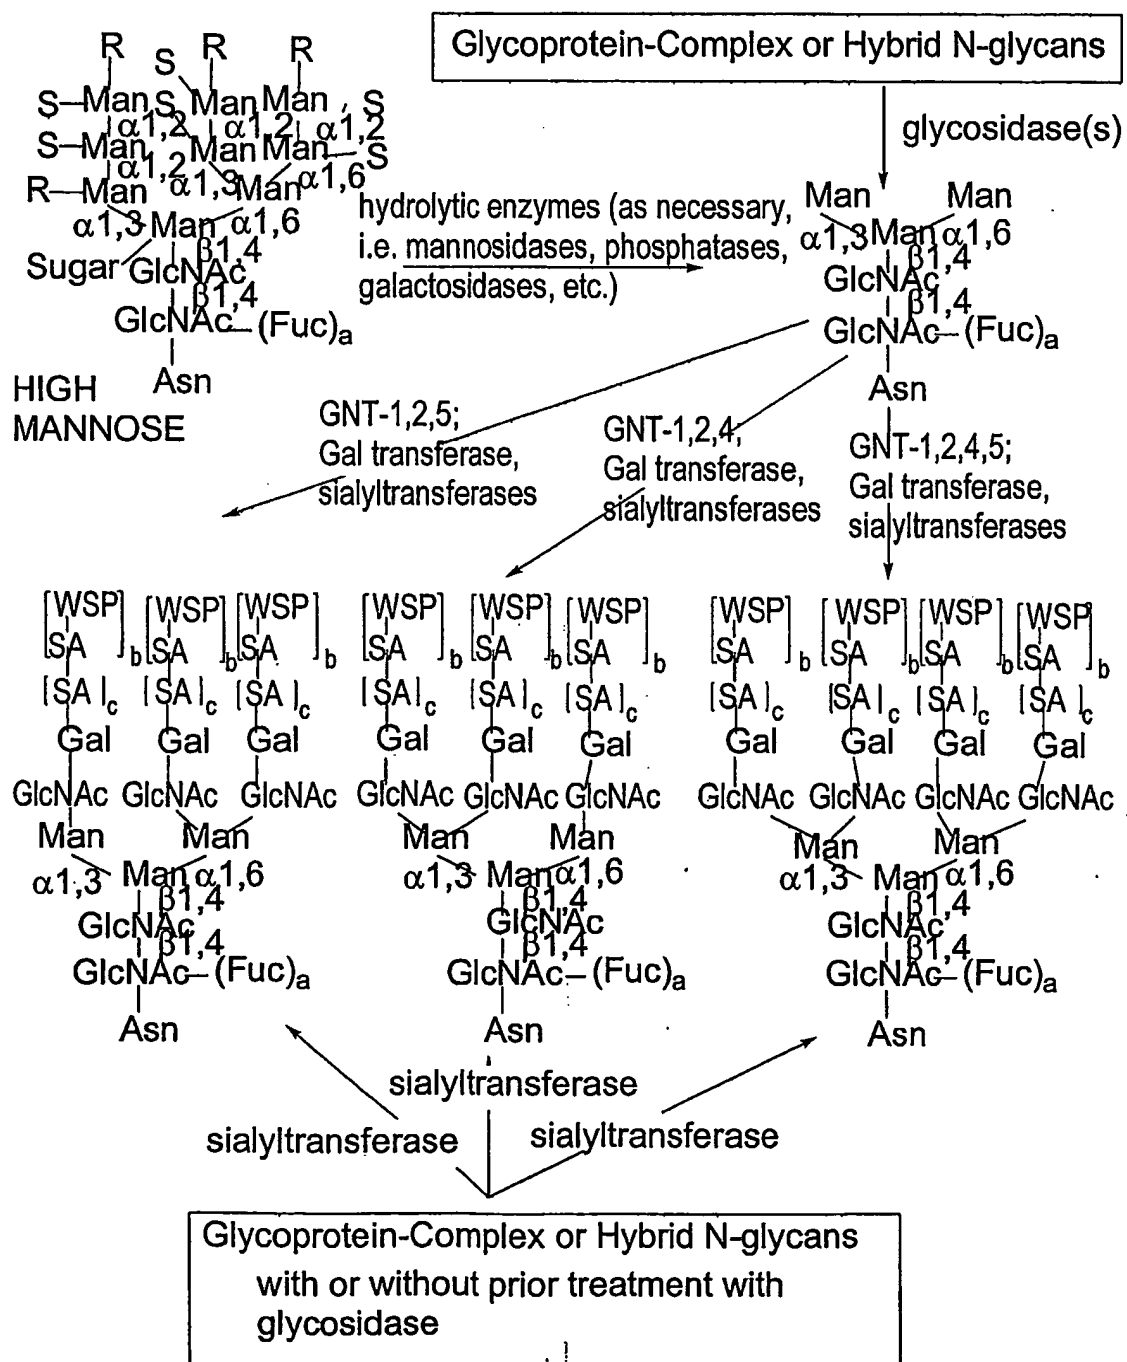 Glycoprotein-Complex or Hybrid N-glycans
R S R R
S–Man S Man Man S
α1,2 α1,2 α1,2
S–Man Man Man–S
α1,2 α1,3 α1,6
R–Man Man
α1,3 Man α1,6
β1,4
Sugar GlcNAc
β1,4
GlcNAc–(Fuc)a
Asn
HIGH
MANNOSE
hydrolytic enzymes (as necessary,
i.e. mannosidases, phosphatases,
galactosidases, etc.)
glycosidase(s)
Man Man
α1,3 Man α1,6
β1,4
GlcNAc
β1,4
GlcNAc–(Fuc)a
Asn
GNT-1,2,5;
Gal transferase,
sialyltransferases
GNT-1,2,4;
Gal transferase,
sialyltransferases
GNT-1,2,4,5;
Gal transferase,
sialyltransferases
[WSP] [WSP] [WSP]
[SA]b [SA]b [SA]b
[SA]c [SA]c [SA]c
Gal Gal Gal
GlcNAc GlcNAc GlcNAc
Man Man
α1,3 Man α1,6
β1,4
GlcNAc
β1,4
GlcNAc–(Fuc)a
Asn
[WSP] [WSP] [WSP]
[SA]b [SA]b [SA]b
[SA]c [SA]c [SA]c
Gal Gal Gal
GlcNAc GlcNAc GlcNAc
Man Man
α1,3 Man α1,6
β1,4
GlcNAc
β1,4
GlcNAc–(Fuc)a
Asn
[WSP] [WSP] [WSP] [WSP]
[SA]b [SA]b [SA]b [SA]b
[SA]c [SA]c [SA]c [SA]c
Gal Gal Gal Gal
GlcNAc GlcNAc GlcNAc GlcNAc
Man Man
α1,3 Man α1,6
β1,4
GlcNAc
β1,4
GlcNAc–(Fuc)a
Asn
sialyltransferase
sialyltransferase sialyltransferase
Glycoprotein-Complex or Hybrid N-glycans
with or without prior treatment with
glycosidase